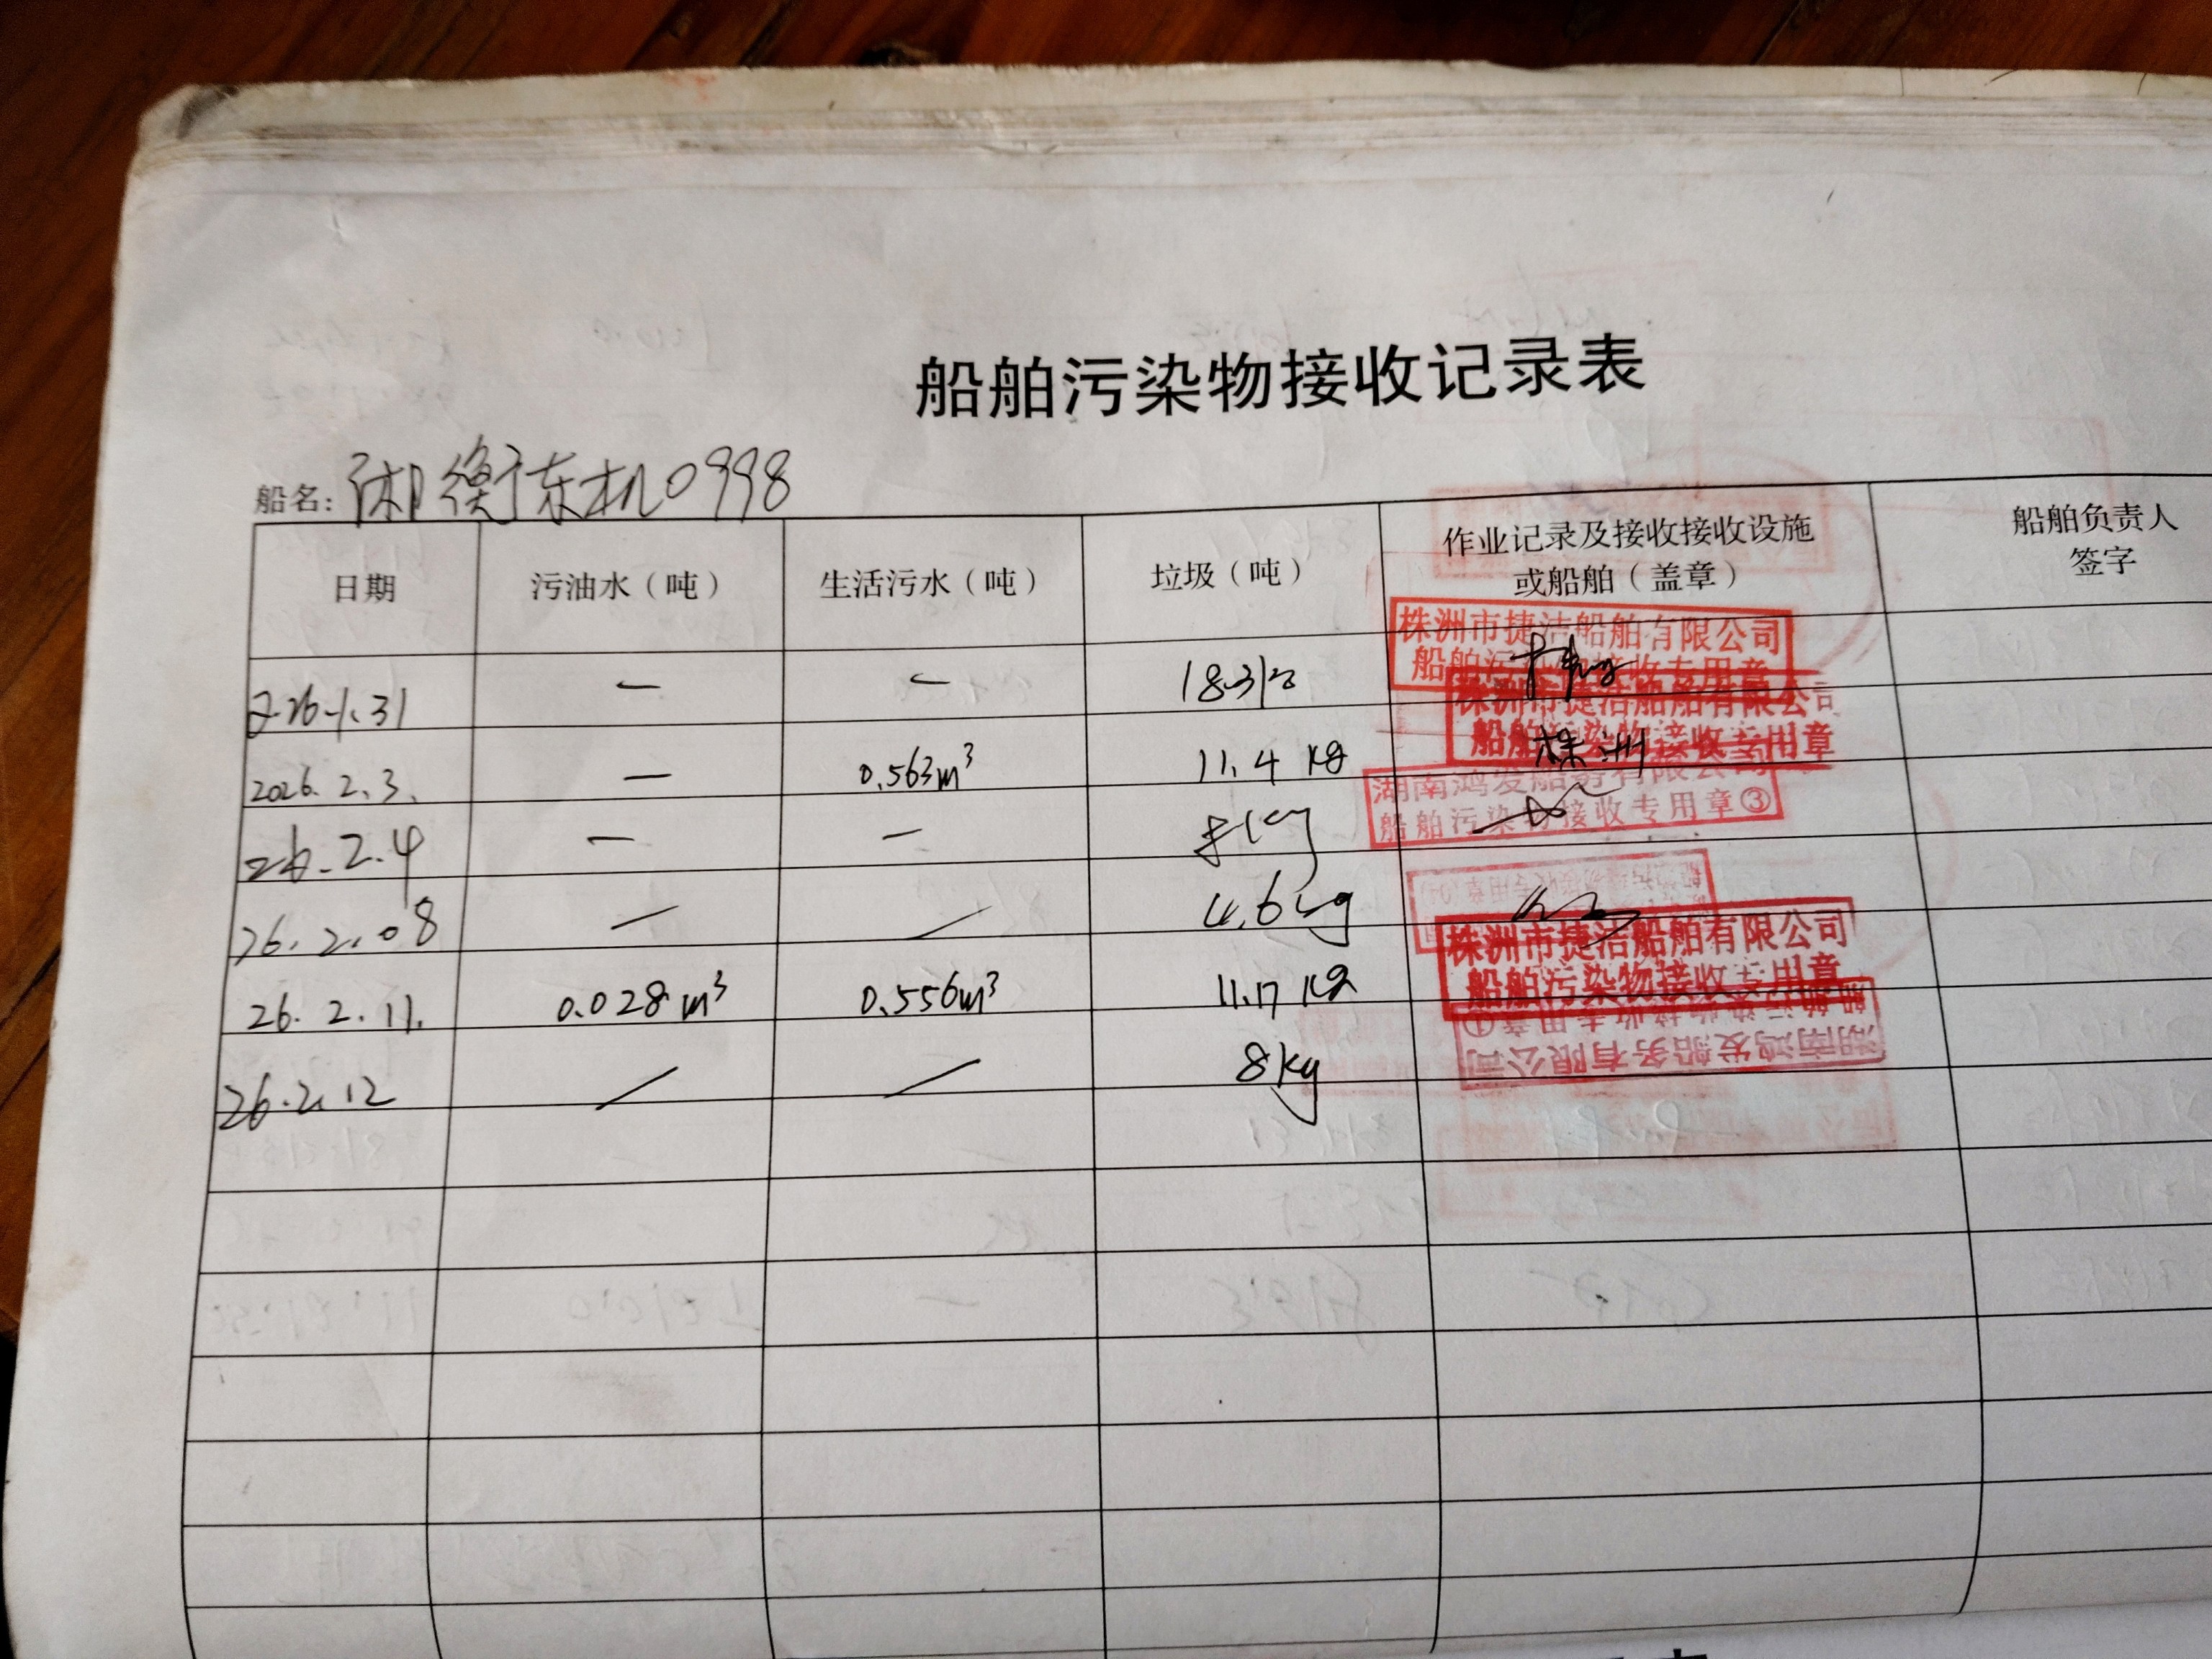 船舶污染物接收记录表
船名: 湘衡东机0998
日期 污油水（吨） 生活污水（吨） 垃圾（吨） 作业记录及接收接收设施或船舶（盖章） 船舶负责人签字
26.1.31 — — 18.3 株洲市捷洁船舶有限公司 船舶污染物接收专用章
2026.2.3. — 0.563m³ 11.4 kg 株洲市捷洁船舶有限公司 船舶污染物接收专用章 株洲
26.2.4 — — 8kg 湖南鸿发船务有限公司 船舶污染物接收专用章③
26.2.08 / / 4.6kg
26.2.11. 0.028m³ 0.556m³ 11.17 kg 株洲市捷洁船舶有限公司 船舶污染物接收专用章
26.2.12 / / 8kg 湖南鸿发船务有限公司 船舶污染物接收专用章①